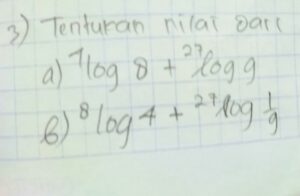 3) Tentukan nilai dari
a) ⁴log 8 + ²⁷log 9
b) ⁸log 4 + ²⁷log 1/9